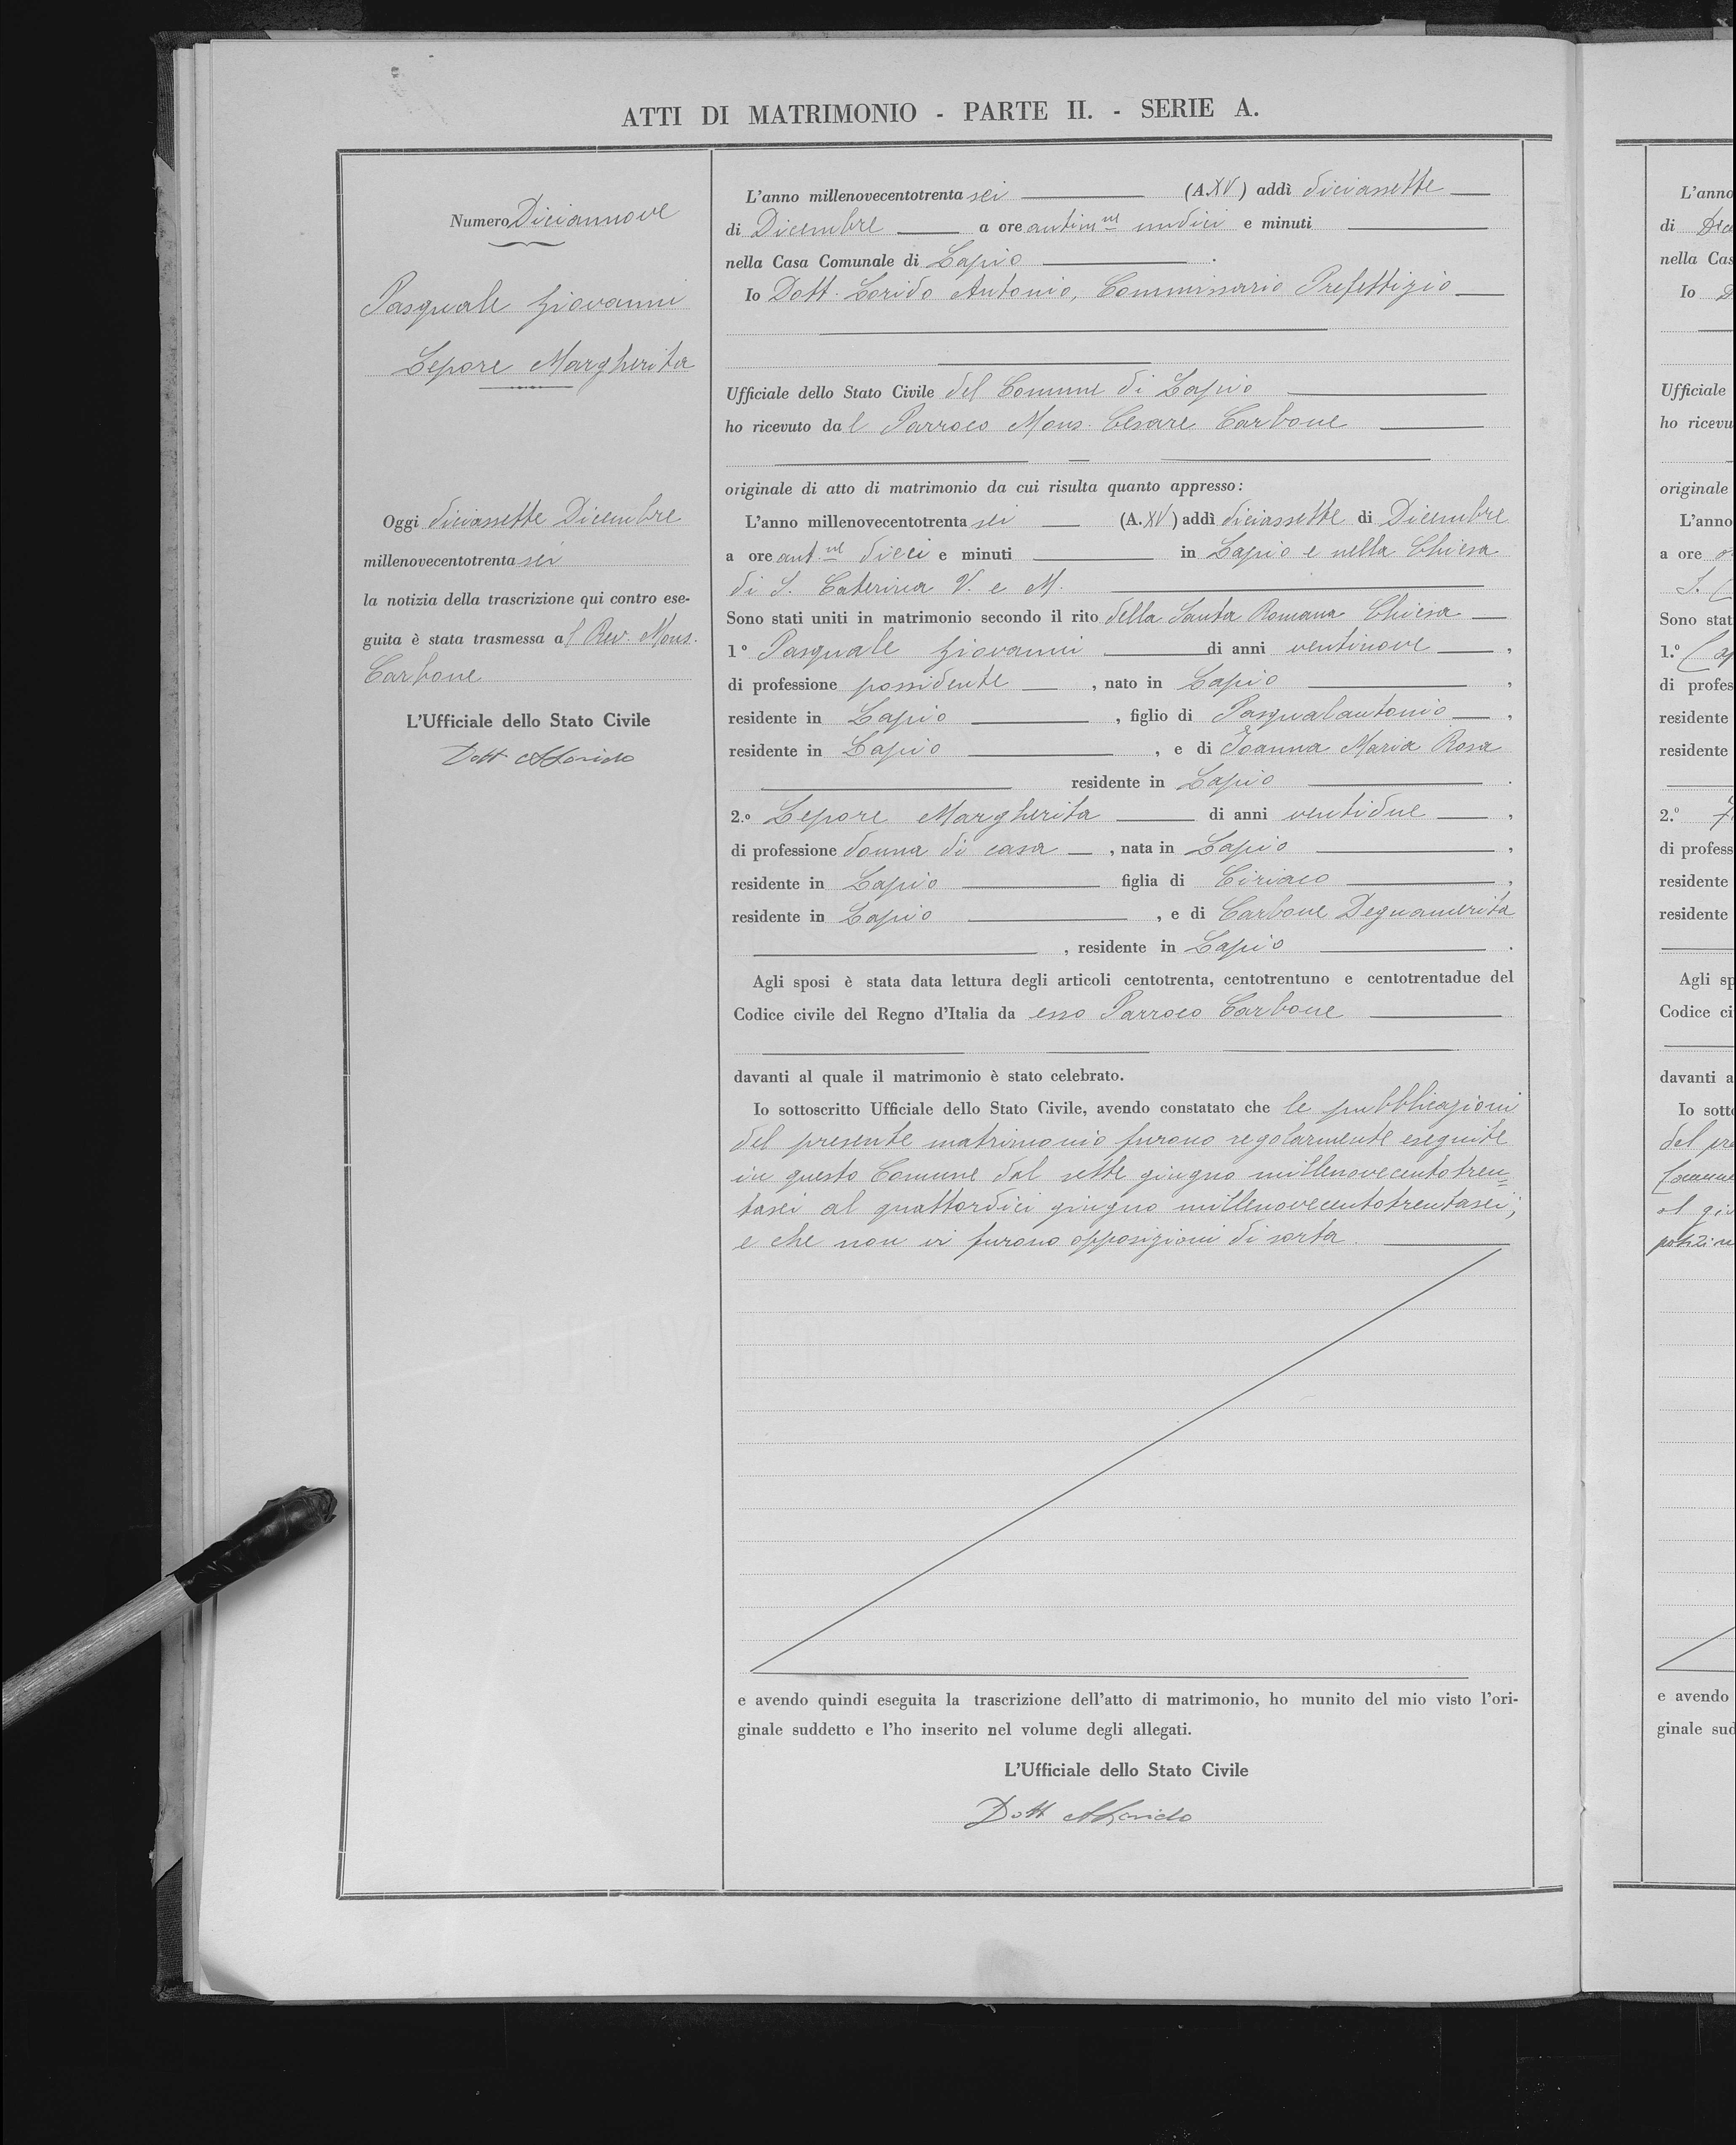 ATTI DI MATRIMONIO - PARTE II. - SERIE A.
Numero Diciannove
Pasquale Giovanni
Lepore Margherita
Oggi diciassette Dicembre
millenovecentotrenta sei
la notizia della trascrizione qui contro ese-
guita è stata trasmessa al Rev. Mons.
Carbone
L'Ufficiale dello Stato Civile
Dott
L'anno millenovecentotrenta sei (A. XV) addì diciassette
di Dicembre a ore antimne undici e minuti
nella Casa Comunale di Lapio.
Io Dott. Lorido Antonio, Commissario Prefettizio
Ufficiale dello Stato Civile del Comune di Lapio
ho ricevuto dal Parroco Mons. Cesare Carbone
originale di atto di matrimonio da cui risulta quanto appresso:
L'anno millenovecentotrenta sei (A. XV) addì diciassette di Dicembre
a ore ant.ne dieci e minuti in Lapio e nella Chiesa
di S. Caterina V. e M.
Sono stati uniti in matrimonio secondo il rito della Santa Romana Chiesa
1º Pasquale Giovanni di anni ventinove,
di professione possidente, nato in Lapio,
residente in Lapio, figlio di Pasqualantonio,
residente in Lapio, e di Ioanna Maria Rosa
residente in Lapio.
2.º Lepore Margherita di anni ventidue,
di professione donna di casa, nata in Lapio,
residente in Lapio figlia di Ciriaco,
residente in Lapio, e di Carbone Degnamerita
, residente in Lapio.
Agli sposi è stata data lettura degli articoli centotrenta, centotrentuno e centotrentadue del
Codice civile del Regno d'Italia da esso Parroco Carbone
davanti al quale il matrimonio è stato celebrato.
Io sottoscritto Ufficiale dello Stato Civile, avendo constatato che le pubblicazioni
del presente matrimonio furono regolarmente eseguite
in questo Comune dal sette giugno millenovecentotren=
tasei al quattordici giugno millenovecentotrentasei;
e che non vi furono opposizioni di sorta.
e avendo quindi eseguita la trascrizione dell'atto di matrimonio, ho munito del mio visto l'ori-
ginale suddetto e l'ho inserito nel volume degli allegati.
L'Ufficiale dello Stato Civile
Dott ALorido
L'anno
di
nella Cas
Io
Ufficiale
ho ricevu
originale
L'anno
a ore
S.
Sono stat
1.º
di profes
residente
residente
2.º
di profess
residente
residente
Agli sp
Codice ci
davanti a
Io sotto
del pre
e avendo
ginale sud